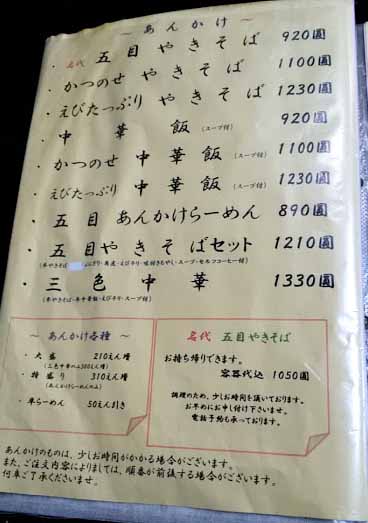 ～ あんかけ ～
・名代 五目やきそば 920圓
・かつのせ やきそば 1100圓
・えびたっぷり やきそば 1230圓
・中華飯（スープ付） 920圓
・かつのせ 中華飯（スープ付） 1100圓
・えびたっぷり 中華飯（スープ付） 1230圓
・五目 あんかけらーめん 890圓
・五目やきそばセット 1210圓
・三色中華 1330圓
～ あんかけ各種 ～
・大盛 210えん増
（三色中華のみ300えん増）
・特盛り 310えん増
（あんかけらーめんのみ）
・半らーめん 50えん引き
名代 五目やきそば
お持ち帰りできます。
容器代込 1050圓
調理のため、少しお時間を頂いております。
お早めにお申し付け下さいませ。
電話予約も承っております。
あんかけのものは、少しお時間がかかる場合がございます。
また、ご注文内容によりましては、順番が前後する場合がございます。
何卒ご了承くださいませ。